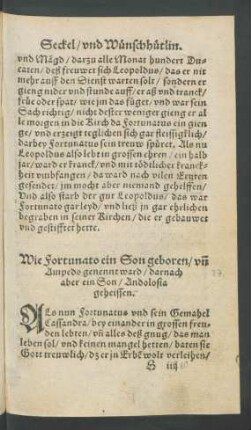 Seckel/vnd Wünschhütlin.
vnd Mägd/darzu alle Monat hundert Du-
caten/deß frewet sich Leopoldus/das er nit
mehr auff den Dienst warten solt/sondern er
gieng nider vnd stunde auff/er aß vnd tranck/
früe oder spat/wie jm das füget/vnd war sein
Sach richtig/nicht dester weniger gieng er al
le morgen in die Kirch da Fortunatus ein gien
ge/vnd erzeigt teglichen sich gar fleissigtlich/
darbey Fortunatus sein trewe spüret. Als nu
Leopoldus also lebt in grossen ehren/ein halb
jar/ward er kranck/vnd mit tödtlicher kranck-
heit vmbfangen/da ward nach vilen Ertzten
gesendet/jm mocht aber niemand gehelffen/
Vnd also starb der gut Leopoldus/das war
Fortunato gar leyd/vnd ließ jn gar ehrlichen
begraben in seiner Kirchen/die er gebauwet
vnd gestifftet hette.
Wie Fortunato ein Son geboren/vñ
Ampedo genennt ward/darnach
aber ein Son/Andolosia
geheissen.
ALs nun Fortunatus vnd sein Gemahel
Cassandra/bey einander in grossen freu-
den lebten/vñ alles deß gnug/das man
leben sol/vnd keinen mangel hetten/baten sie
Gott treuwlich/dz er jn Erbẽ wolt verleihen/
B iiij